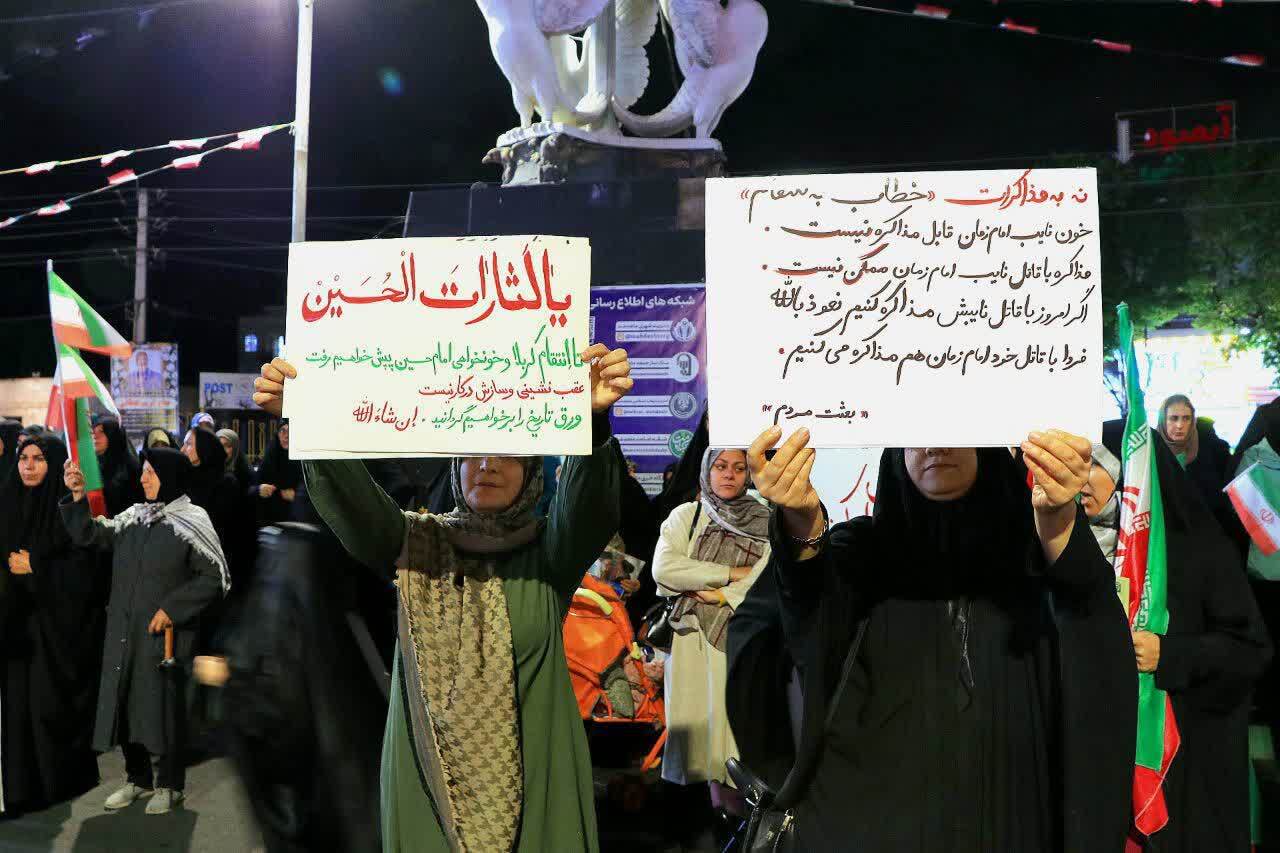 یالثارات الحسین
تا انتقام کربلا و خونخواهی امام حسین پیش خواهیم رفت
عقب نشینی و سازش در کار نیست
ورق تاریخ را برخواهیم گرداند . إن شاء الله
نه به مذاکرات «خطاب به سقام»
خون نایب امام زمان قابل مذاکره نیست .
مذاکره با قاتل نایب امام زمان ممکن نیست .
اگر امروز با قاتل نایبش مذاکره کنیم نعوذ بالله
فردا با قاتل خود امام زمان هم مذاکره می کنیم .
«بعثت مردم»
شبکه های اطلاع رسانی
POST